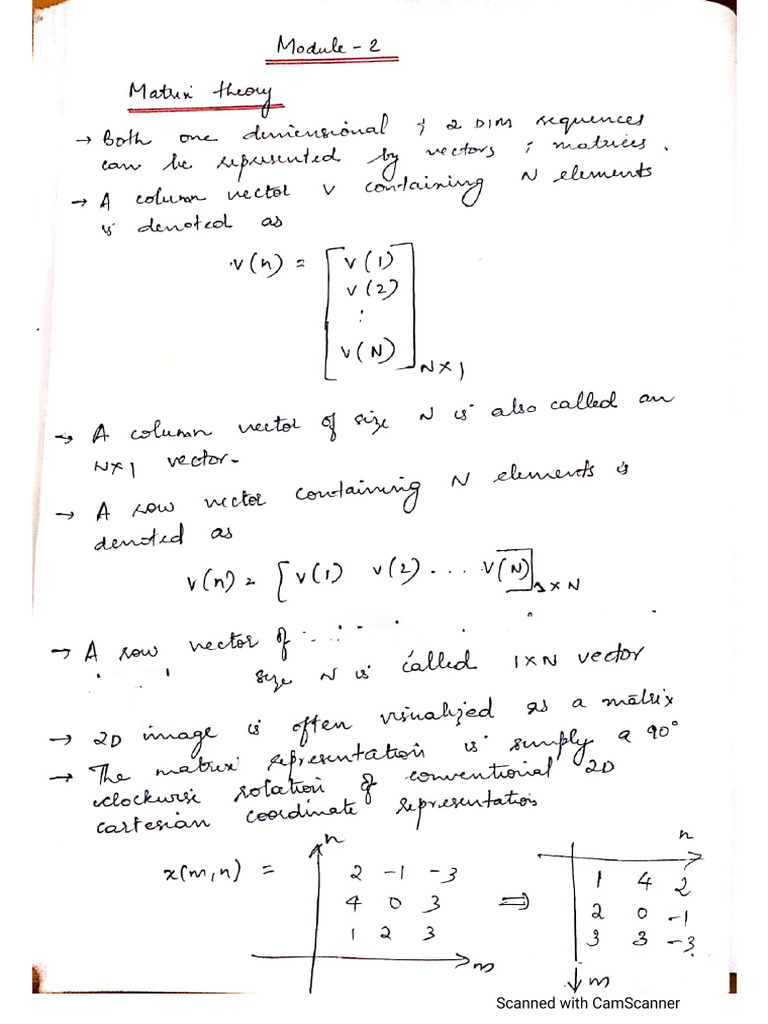 Module - 2
Matrix theory
→ Both one dimensional & 2 DIM sequences
can be represented by vectors & matrices.
→ A column vector v containing N elements
is denoted as
v(n) = [ v(1)
v(2)
:
v(N) ] N×1
→ A column vector of size N is also called an
N×1 vector.
→ A row vector containing N elements is
denoted as
v(n) = [ v(1) v(2) . . . . v(N) ] 1×N
→ A row vector of
size N is called 1×N vector
→ 2D image is often visualized as a matrix
→ The matrix representation is simply a 90°
clockwise rotation of conventional 2D
cartesian coordinate representation
x(m,n) =
n
2 -1 -3
4 0 3
1 2 3
m
⇒
n
1 4 2
2 0 -1
3 3 -3
m
Scanned with CamScanner